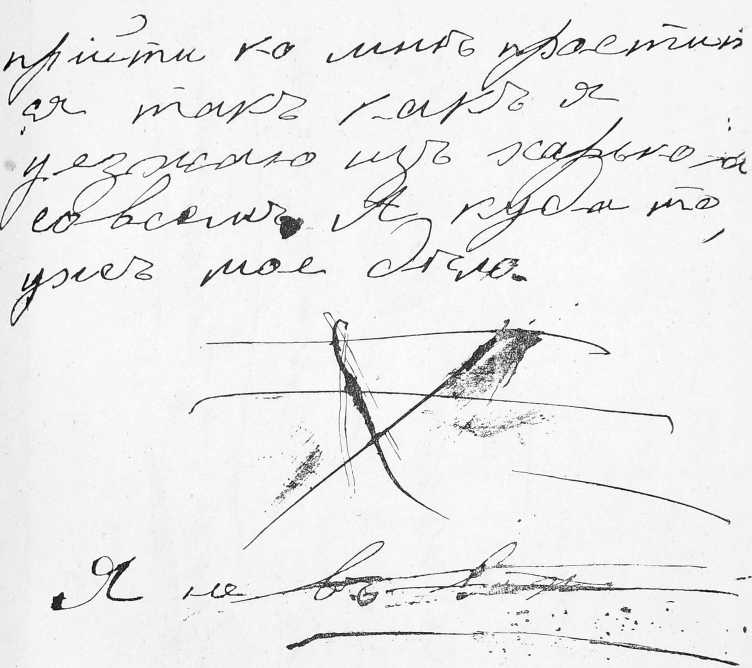 прійти ко мнѣ простит
ся такъ какъ я
уезжаю изъ харькова
совсемъ. А куда то,
ужъ мое дѣло.
Я не въ